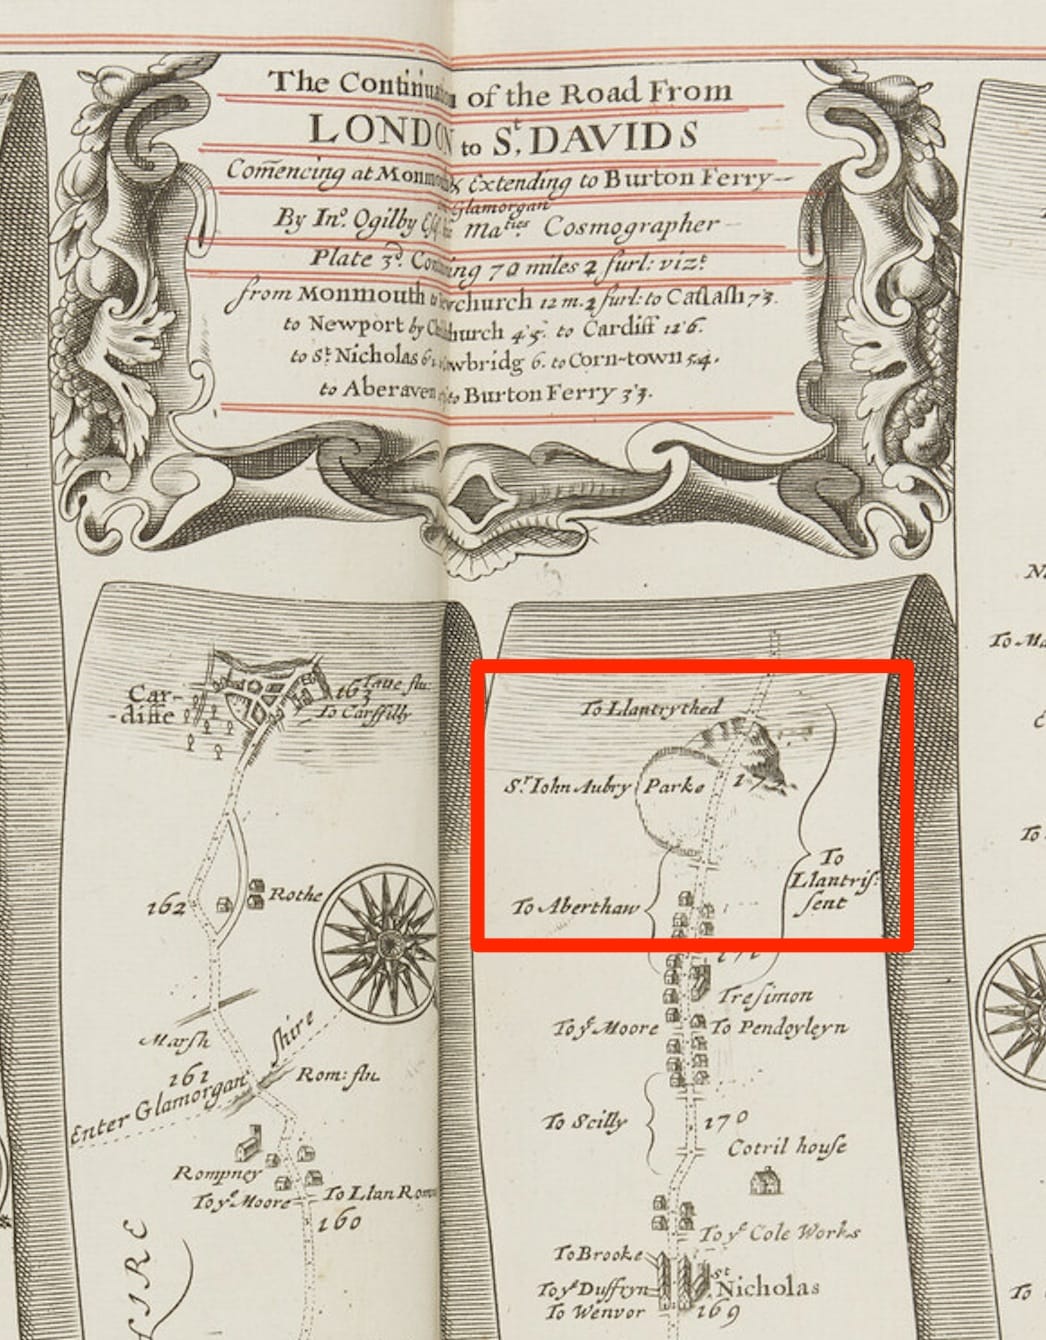 The Continuation of the Road From
LONDON to St. DAVIDS
Com̄encing at Monmouth & Extending to Burton Ferry
Glamorgan
By Ino. Ogilby Esq. his Maties Cosmographer
Plate 3d. Containing 70 miles 2 furl: vizt.
from Monmouth to Newchurch 12 m. 2 furl: to Caſlaſh 7'3.
to Newport by Church 4'5. to Cardiff 12'6.
to St. Nicholas 6' wbridg 6. to Corn-town 5'4.
to Aberaven to Burton Ferry 3'3.
Car-
-diffe
163
Taue flu:
To Carffilly
162
Rothe
Marſh
161
Enter Glamorgan ſhire
Rom: flu.
Rompney
To ye. Moore
To Llan Rom
160
SIRE
To Llantrythed
Sr. Iohn Aubry Parke
17
To
Llantriſ:
ſent
To Aberthaw
171
Treſimon
To ye. Moore
To Pendoyleyn
To Scilly
170
Cotril houſe
To ye. Cole Works
To Brooke
To ye. Duffryn
To Wenvor
St.
Nicholas
169
To Ma
To
To